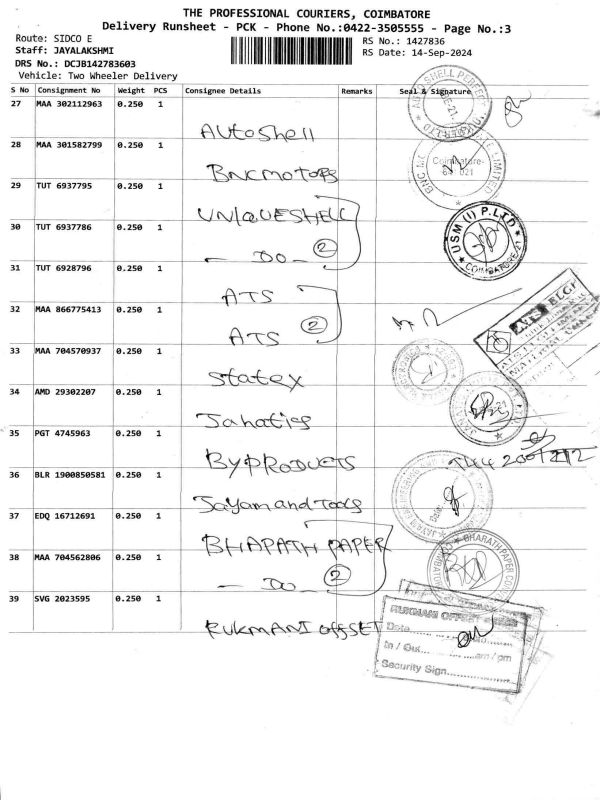 THE PROFESSIONAL COURIERS, COIMBATORE
Delivery Runsheet - PCK - Phone No.:0422-3505555 - Page No.:3
Route: SIDCO E
RS No.: 1427836
Staff: JAYALAKSHMI
RS Date: 14-Sep-2024
DRS No.: DCJB142783603
Vehicle: Two Wheeler Delivery
S No Consignment No Weight PCS Consignee Details Remarks Seal & Signature
27 MAA 302112963 0.250 1
AutoShell
28 MAA 301582799 0.250 1
BNCMotors
29 TUT 6937795 0.250 1
UNIQUESHELL
30 TUT 6937786 0.250 1
- DO - 2
31 TUT 6928796 0.250 1
ATS
32 MAA 866775413 0.250 1
ATS 2
33 MAA 704570937 0.250 1
Statex
34 AMD 29302207 0.250 1
35 PGT 4745963 0.250 1
BYPRODUCTS
36 BLR 1900850581 0.250 1
Jayam and Tools
37 EDQ 16712691 0.250 1
BHARATH PAPER
38 MAA 704562806 0.250 1
- DO - 2
39 SVG 2023595 0.250 1
RUKMANI OFFSET
USM (I) P.LTD
COIMBATORE-21
BHARATH PAPER
RUKMANI OFFSET
Date
In / Out am / pm
Security Sign